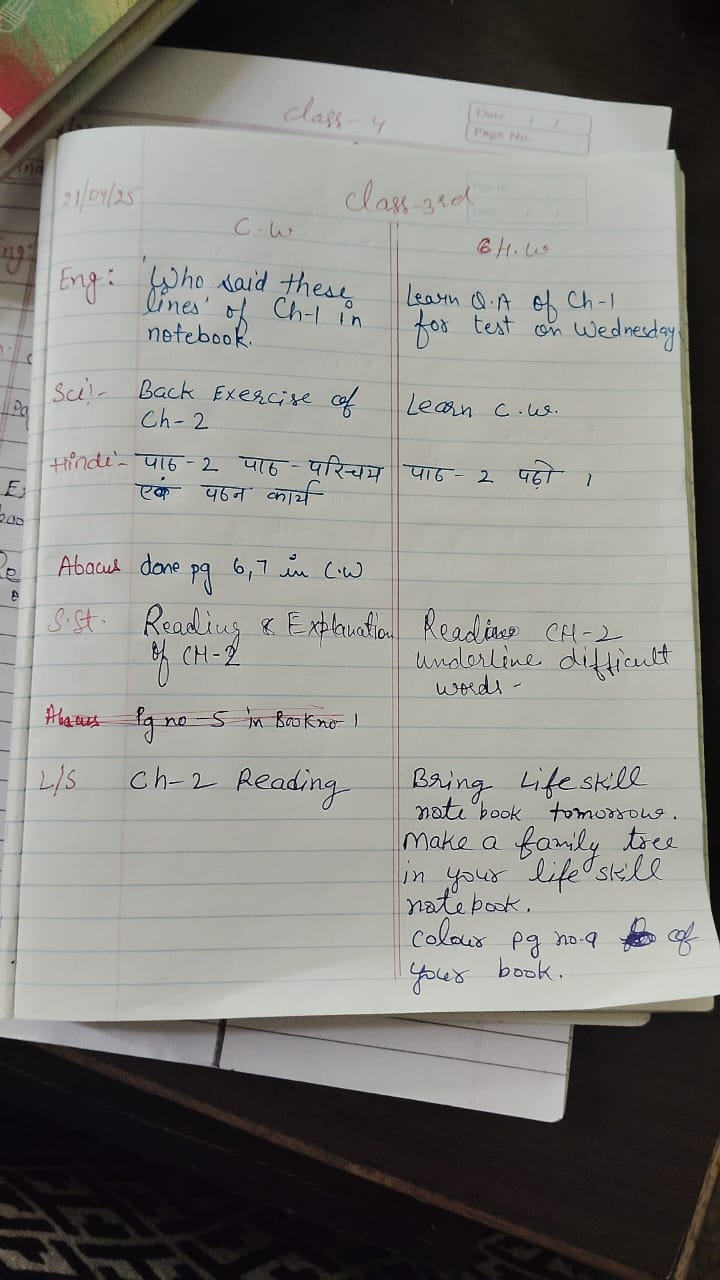 class-4
Date : / /
Page No.
21/04/25
Class-3rd
C.W
H.W
Eng: 'Who said these
lines' of Ch-1 in
notebook.
Learn Q.A of Ch-1
for test on Wednesday.
Sci:- Back Exercise of
Ch-2
Learn C.W.
Hindi- पाठ-2 पाठ-परिचय
एवं पठन कार्य
पाठ-2 पढ़ो ।
Abacus done pg 6,7 in C.W
S.St. Reading & Explanation
of CH-2
Reading CH-2
underline difficult
words-
Abacus Pg no 5 in Book no 1
L/S Ch-2 Reading
Bring Life skill
note book tomorrow.
Make a family tree
in your life skill
notebook.
colour pg no.9 of
your book.